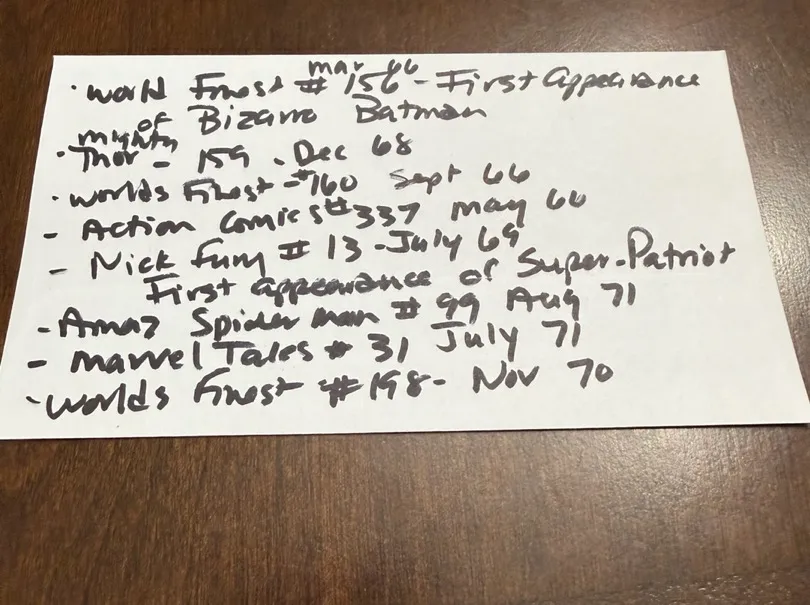 mar 66
· World Finest # 156 - First Appearance
of Bizarro Batman
mighty
· Thor - 159 . Dec 68
· Worlds Finest - #160 Sept 66
- Action Comics #337 May 66
- Nick Fury # 13 - July 69
First Appearance of Super-Patriot
- Amaz Spider man # 99 Aug 71
- Marvel Tales # 31 July 71
· Worlds Finest #198 - Nov 70